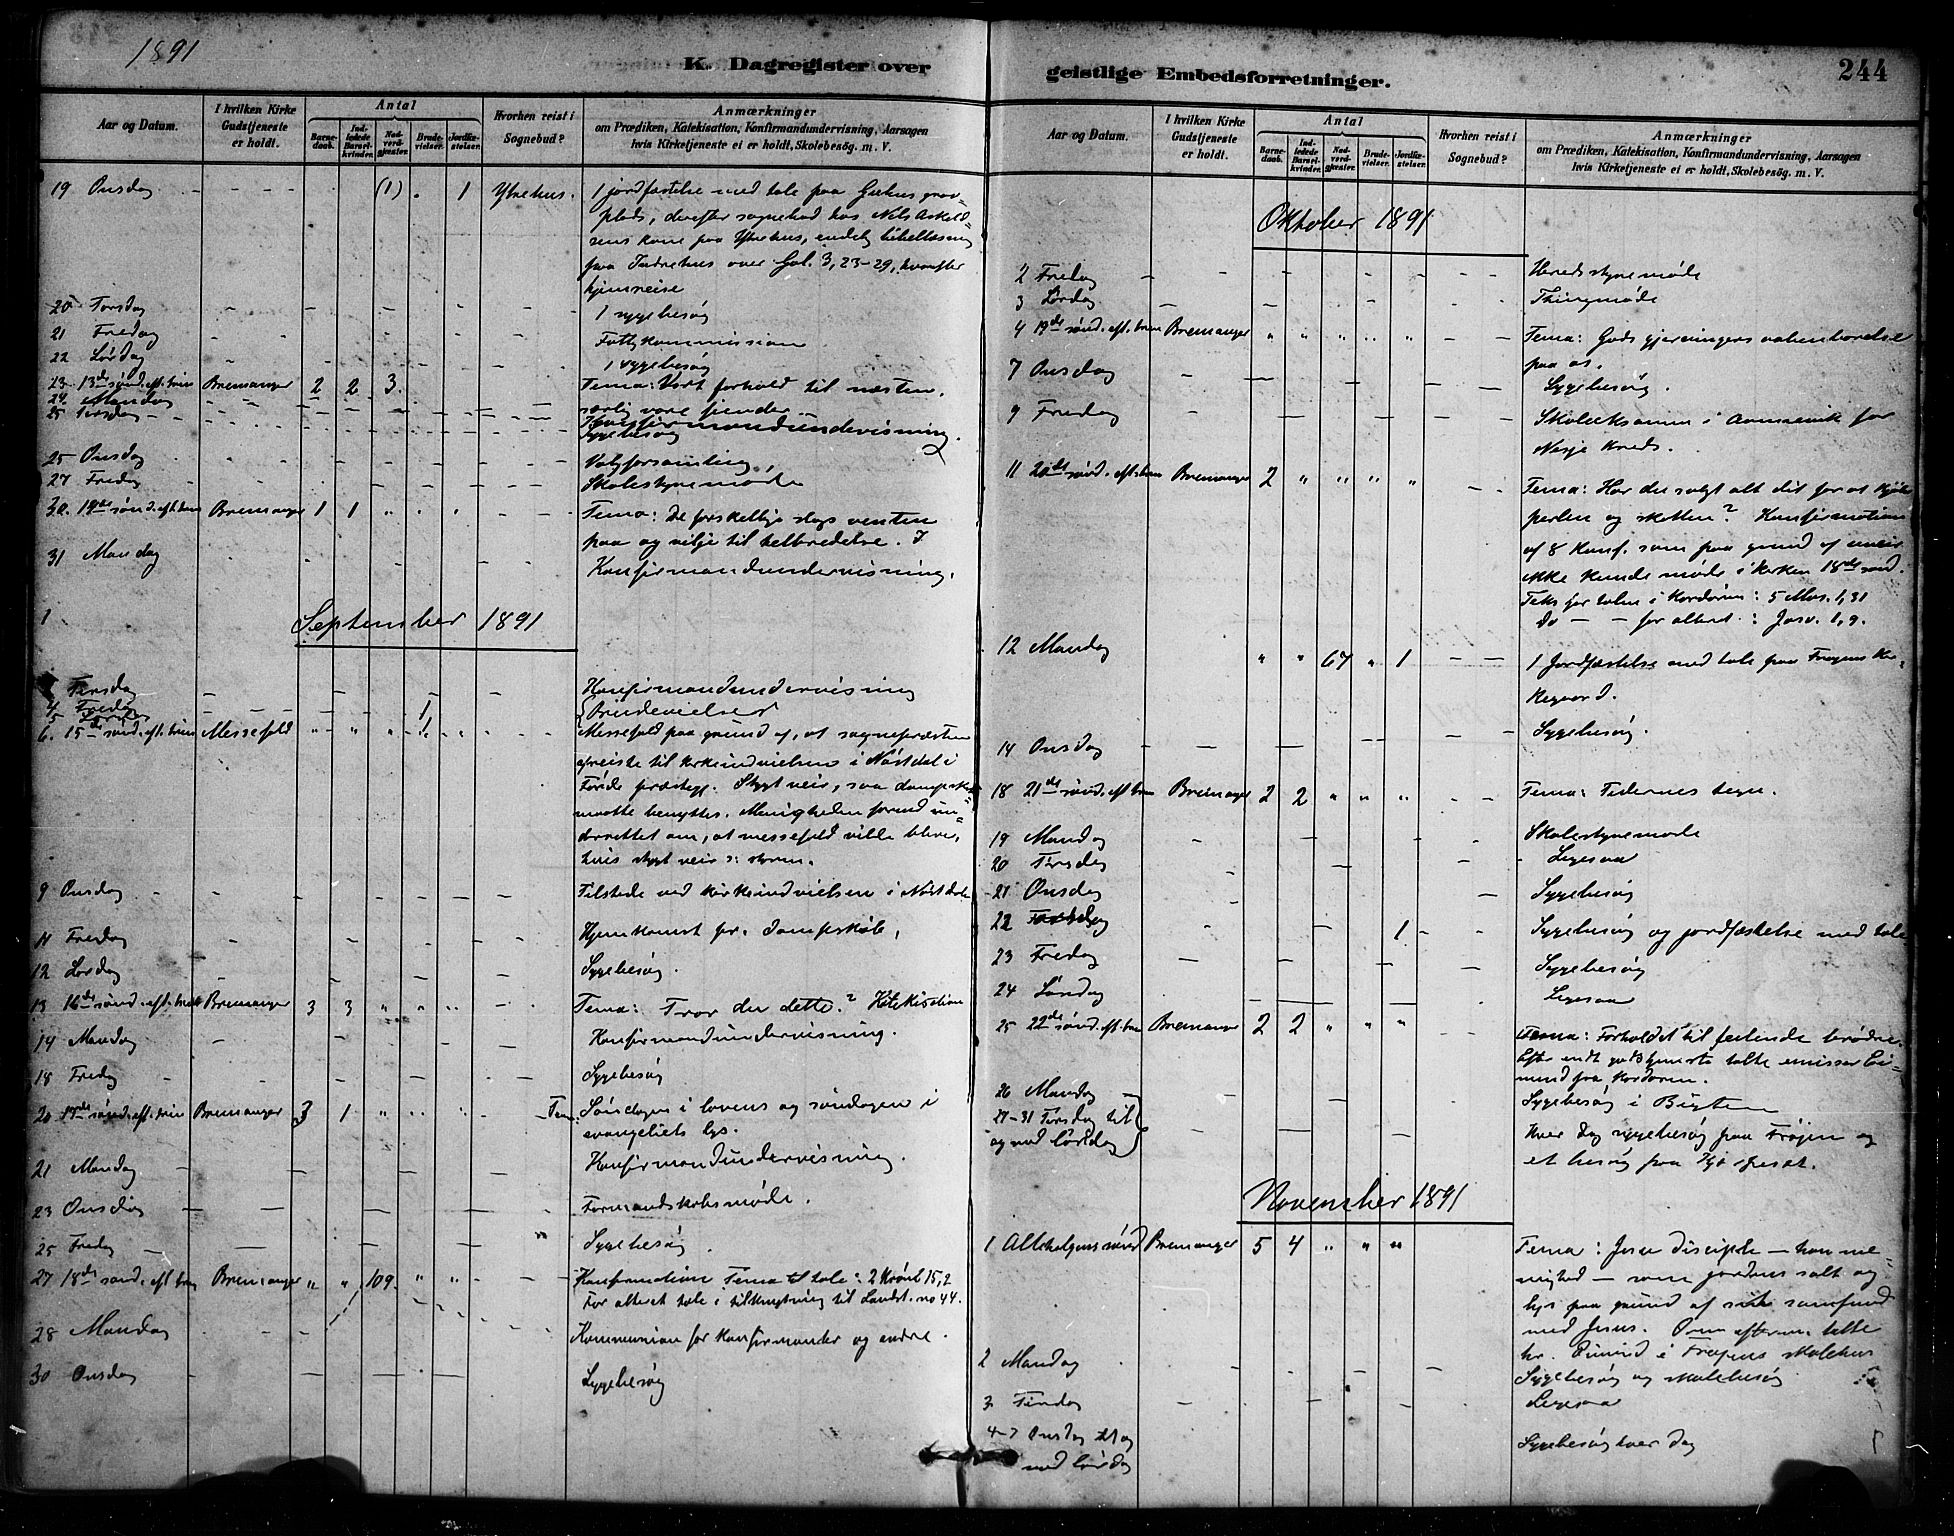 1891
K. Dagregister over
Aar og Datum.
I hvilken Kirke Gudstjeneste er holdt.
Antal
Barne-daab.
Ind-ledede Barsel-kvinder.
Nad-verd-gjester.
Brude-vielser.
Jordfæ-stelser.
Hvorhen reist i Sognebud?
Anmærkninger
om Prædiken, Katekisation, Konfirmandundervisning, Aarsagen
hvis Kirketjeneste ei er holdt, Skolebesög. m. V.
19 Onsdag (1) 1 Ytrehus. 1 jordfæstelse med tale paa grav-
plads, derefter sognebud hos Nils
kone paa Ytrehus, endelig bibellæsning
paa Indrehus over Gal. 3, 23-29, hvorefter
hjemreise
20 Torsdag 1 sygebesøg
21 Fredag Fattigkommission
22 Lørdag 1 sygebesøg
23 13de sønd. eft. trin Bremanger 2 2 3. Tema: Vort forhold til næsten,
særlig vore fiender.
24 Mandag Konfirmandundervisning.
25 Tirsdag Sygebesøg
25 Onsdag Valgforsamling
27 Fredag Skolestyremøde
30. sønd. eft. trin Bremanger 1 1 Tema: De forskellige slags venten
paa og vilje til helbredelse.
31 Mandag Konfirmandundervisning.
September 1891
1 Tirsdag Konfirmandundervisning
4 Fredag 1 Brudevielser
5 Lørdag 1
6. 15de sønd. eft. trin Messefald Messefald paa grund af, at sognepræsten
afreiste til kirkeindvielsen i Nåstdal i
Førde præstegj. Stygt veir, saa dampsk.
maatte benyttes. Menigheden forud un-
derrettet om, at messefald vilde blive,
hvis stygt veir ɔ: storm.
9 Onsdag Tilstede ved kirkeindvielsen i
11 Fredag Hjemkomst pr. dampskib.
12 Lørdag Sygebesøg.
13 16de sønd. eft. trin Bremanger 3 3 Tema: Tror du dette? Katekisation
14 Mandag Konfirmandundervisning.
18 Fredag Sygebesøg
20 17de sønd. eft. trin Bremanger 3 1 Tema: Søndagen i lovens og søndagen i
evangeliets lys.
21 Mandag Konfirmandundervisning.
23 Onsdag Formandskabsmøde.
25 Fredag Sygebesøg.
27 18de sønd. eft. trin Bremanger 109. Konfirmation Tema til tale: 2 Krøn. 15,2
For alteret tale i tilknytning til Landst. no 44.
28 Mandag Kommunion for konfirmander og andre.
30 Onsdag Sygebesøg
geistlige Embedsforretninger.
244
Aar og Datum.
I hvilken Kirke Gudstjeneste er holdt.
Antal
Barne-daab.
Ind-ledede Barsel-kvinder.
Nad-verd-gjester.
Brude-vielser.
Jordfæ-stelser.
Hvorhen reist i Sognebud?
Anmærkninger
om Prædiken, Katekisation, Konfirmandundervisning, Aarsagen
hvis Kirketjeneste ei er holdt, Skolebesög. m. V.
Oktober 1891
2 Fredag Heredsstyremøde
3 Lørdag Thingmøde
4 19de sønd. eft. trin Bremanger Tema: Guds gjerningers aabenbarelse
paa os.
7 Onsdag Sygebesøg.
9 Fredag Skoleeksamen i for
kreds.
11 20de sønd. eft. trin Bremanger 2 Tema: Har du solgt alt dit for at kjøbe
perlen og skatten? Konfirmation
af 8 konf. som paa grund af uveir
ikke kunde møde i kirken 18de sønd.
Tekst for talen i kordøren: 5 Mos. 1, 31
Do — — for alteret: Josv. 1, 9.
12 Mandag 67 1 1 Jordfæstelse med tale paa Frøyens kir-
kegaard.
14 Onsdag Sygebesøg.
18 21de sønd. eft. trin Bremanger 2 2 Tema: Tidernes tegn.
19 Mandag Skolestyremøde
20 Tirsdag Ligesaa
21 Onsdag Sygebesøg
22 Torsdag 1 Sygebesøg og jordfæstelse med tale
23 Fredag Sygebesøg
24 Lørdag Ligesaa
25 22de sønd. eft. trin Bremanger 2 2 Tema: Forholdet til feilende brødre.
Efter endt gudstjeneste talte emissær Ei-
mund fra kordøren.
26 Mandag Sygebesøg i Bigten
27-31 Tirsdag til Hver dag sygebesøg paa Frøjen og
og med lørdag et besøg paa
November 1891
1 Allehelgenssønd Bremanger 5 4 Tema: Jesu disciple — hans me-
nighed — som jordens salt og
lys paa grund af sit samfund
med Jesus. Om efterm. talte
hr. Eimund i Frøjens skolehus
2 Mandag Sygebesøg og skolebesøg
3 Tirsdag Ligesaa
4-7 Onsdag til og Sygebesøg hver dag
med lørdag